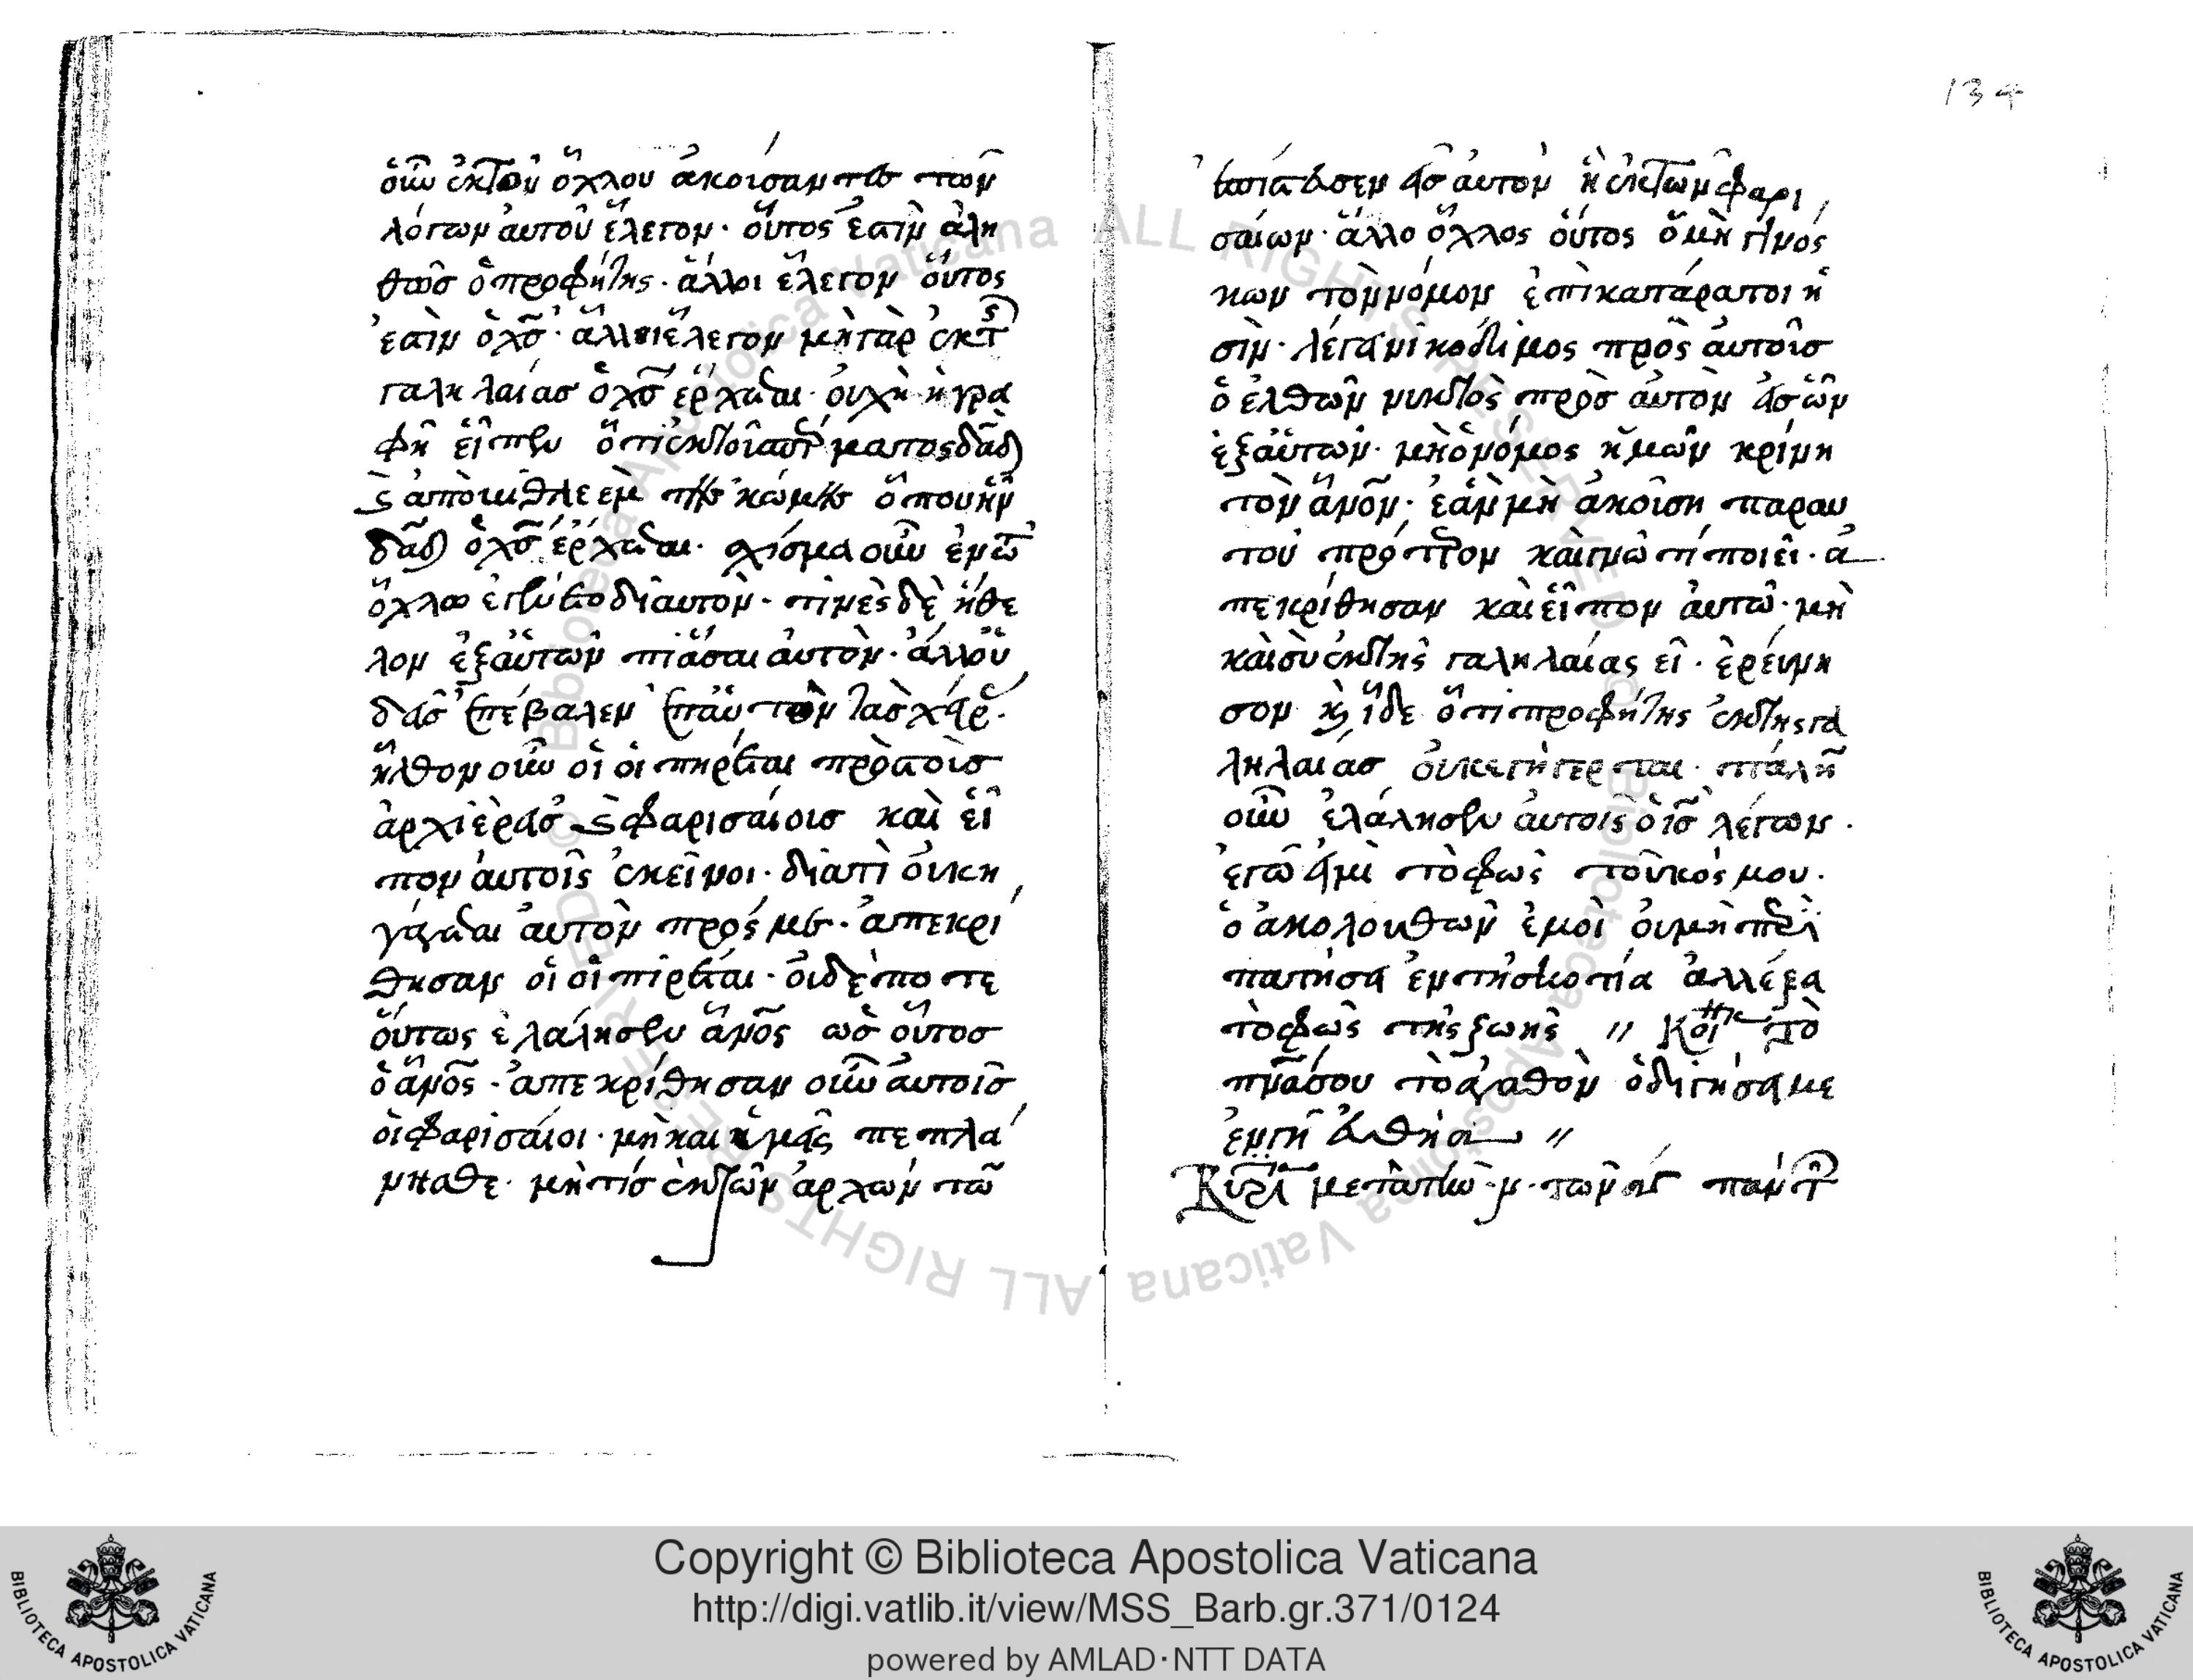 134
ὀῦν ἐκτοῦ ὄχλου ἀκοίσαντες τῶν
λόγων ἀυτοῦ ἔλεγον· οὕτος ἐστὶν ἀλη
θῶσ ὁ προφήτης· ἄλλοι ἔλεγον οὕτος
ἐστὶν ὁ χς̃· ἄλλοι ἔλεγον μὴ γὰρ ἐκτ
γαλη λαίασ ὁ χς̃ ἔρχεται· ὀυχὴ ἡ γρα
φὴ εἶπεν ὅτι ἐκτοῖ σπέρματος δᾱδ
ϗ ἀπὸ βιθλεεμ τῆς κώμης ὅπου ἦν
δᾱδ ὁ χς̃ ἔρχεται· σχίσμα οὖν ἐν τῶ
ὄχλω ἐγένετο διαυτὸν· τινὲς δὲ ἤθε
λον ἐξαὐτῶν πιᾶσαι ἀυτὸν· ἀλλοὐ
δεὶσ ἐπέβαλεν ἐπαὐτὸν τὰσ χεῖρ
ἦλθον οὖν οἱ οἱπηρέται πρὸς τοὶσ
ἀρχιερεῖσ ϗ φαρισαίοισ καὶ εἶ
πον ἀυτοῖς ἐκεῖνοι· διατὶ ὀυκη
γάγεται ἀυτὸν πρός με· ἀπεκρί
θησαν οἱ οἱπιρέται· οἰδέποτε
οὕτως ἐλάλησεν ἄν̅ο̅ς̅ ὡσ οὕτοσ
ὁ ἄν̅ο̅ς̅· ἀπεκρίθησαν οὖν ἀυτοῖσ
οἱ φαρισαίοι· μὴ και ἡμεῖς πεπλά
νησθε· μὴ τίσ ἐκτῶν ἀρχών τῶ
ἐπίστευσεν εἰσ ἀυτὸν ἢ ἐκτῶν φαρι
σαίων· ἄλλο ὄχλος οὕτος ὁ μὴ γίνος
κων τὸν νόμον ἐπὶκατάρατοι ἠ
σὶν· λέγει νικοδίμος πρὸς ἀυτοῖσ
ὁ ἐλθῶν νυκτὸς πρὸσ ἀυτὸν εἷσ ὢν
ἐξαὐτῶν· μὴ ὁ νόμος ἡμῶν κρίνη
τὸν ἄν̅ο̅ν̅· ἐὰν μὴ ἀκοίση παραυ
τοῦ πρότερον καὶ γνῶ τί ποιεῖ· ἀ
πεκρίθησαν καὶ εἶπον ἀυτῶ· μὴ
καὶ σὺ ἐκτῆς γαληλαίας εἶ· ἐρεύνη
σον ϗ ἴδε ὅτι προφήτης ἐκτης γα
ληλαιάσ ὀυκεγήγερται· πάλην
οὖν ἐλάλησεν ἀυτοῖς ὁ ι̅ς̅ λέγων·
ἐγώ εἰμὶ τὸ φῶς τοῦ κόσμου·
ὁ ἀκολουθῶν ἐμοὶ ὀυμὴ περὶ
πατήσει ἐν τὴ σκοτία ἀλλέξει
τὸ φῶς τῆς ζωῆς // Κοι τὸ
πν̅α̅ σου τὸ ἀγαθὸν ὁδιγήσει με
ἐν γῆ εὐθήα //
Κυρι μετὰ τὼ · ν · τῶν ἁγ παντ
Copyright © Biblioteca Apostolica Vaticana
http://digi.vatlib.it/view/MSS_Barb.gr.371/0124
powered by AMLAD·NTT DATA